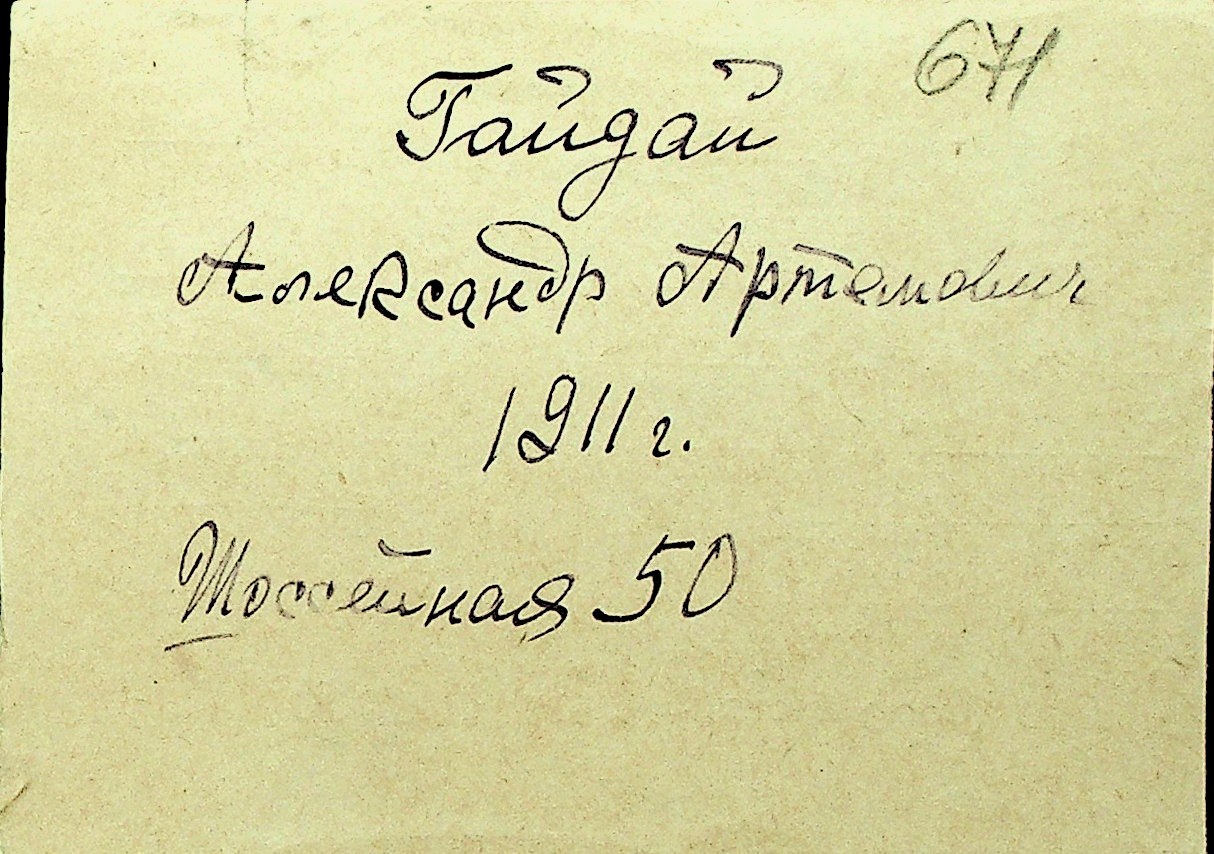 671
Гайдай
Александр Артемович
1911 г.
Шоссейная 50